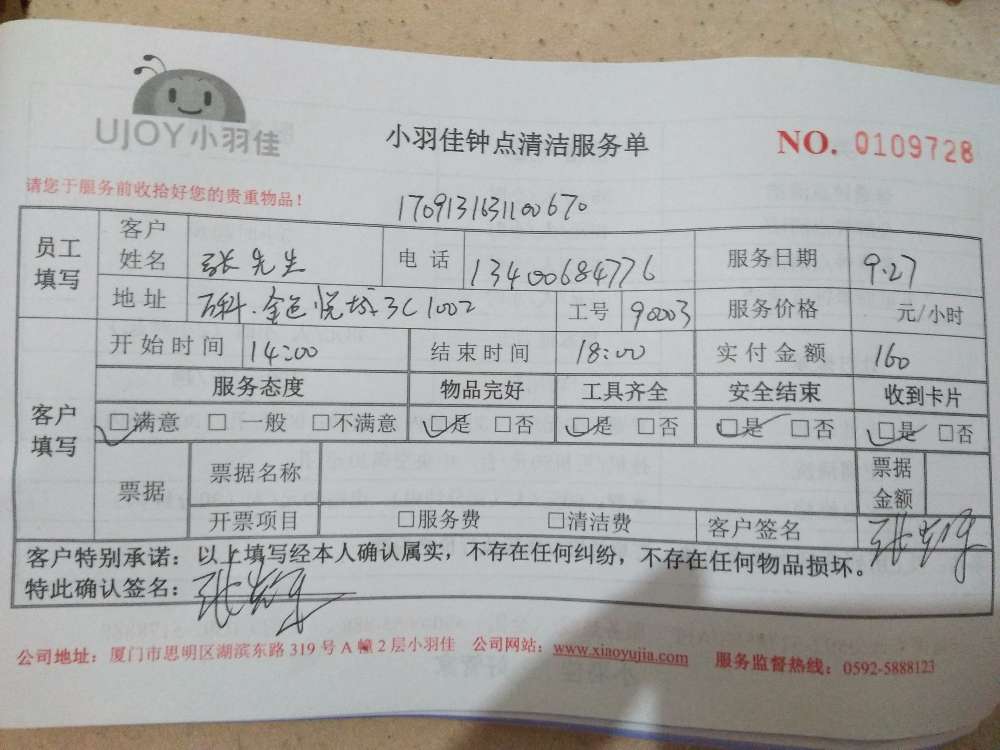 UJOY小羽佳
小羽佳钟点清洁服务单
NO. 0109728
请您于服务前收拾好您的贵重物品！
1709131631100670
员工填写 客户姓名 张先生 电话 13400684776 服务日期 9.27
地址 万科.金色悦城3C1002 工号 90003 服务价格 元/小时
客户填写 开始时间 14:00 结束时间 18:00 实付金额 160
服务态度 物品完好 工具齐全 安全结束 收到卡片
☑满意 □一般 □不满意 ☑是 □否 ☑是 □否 ☑是 □否 ☑是 □否
票据 票据名称 票据金额
开票项目 □服务费 □清洁费 客户签名
客户特别承诺：以上填写经本人确认属实，不存在任何纠纷，不存在任何物品损坏。
特此确认签名：
公司地址：厦门市思明区湖滨东路319号A幢2层小羽佳 公司网站：www.xiaoyujia.com 服务监督热线：0592-5888123